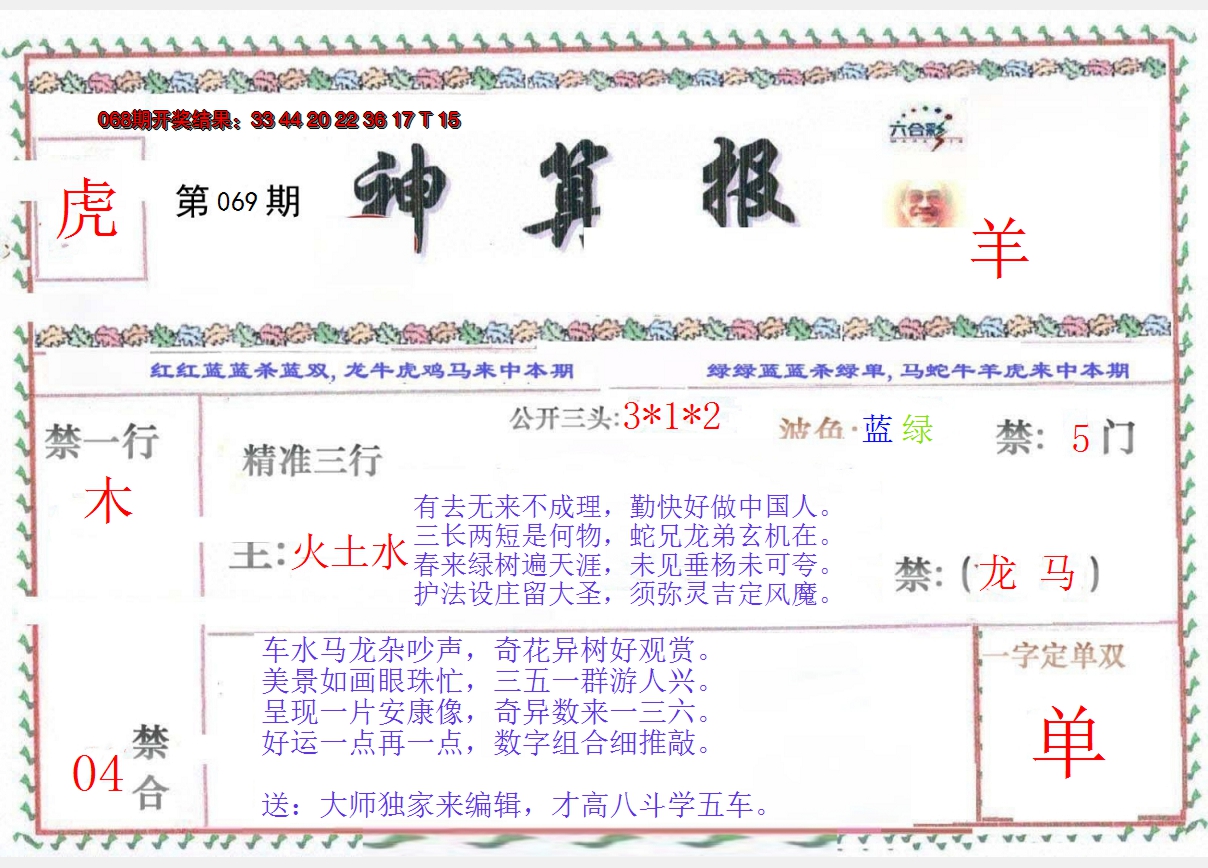 068期开奖结果：33 44 20 22 36 17 T 15
六合彩
虎
第 069 期
神算报
羊
红红蓝蓝杀蓝双，龙牛虎鸡马来中本期
绿绿蓝蓝杀绿单，马蛇牛羊虎来中本期
禁一行
木
精准三行
公开三头:3*1*2
波色:蓝 绿
禁: 5 门
主:火土水
有去无来不成理，勤快好做中国人。
三长两短是何物，蛇兄龙弟玄机在。
春来绿树遍天涯，未见垂杨未可夸。
护法设庄留大圣，须弥灵吉定风魔。
禁:(龙 马)
车水马龙杂吵声，奇花异树好观赏。
美景如画眼珠忙，三五一群游人兴。
呈现一片安康像，奇异数来一三六。
好运一点再一点，数字组合细推敲。
送：大师独家来编辑，才高八斗学五车。
04
禁合
一字定单双
单